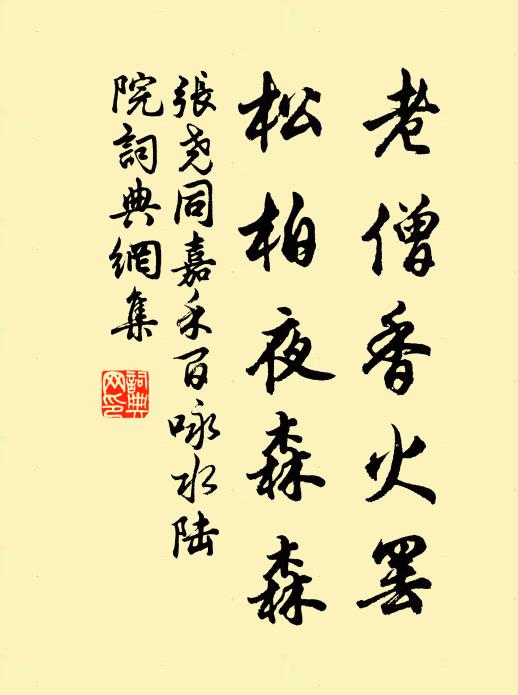 老僧香火罢
松柏夜森森
張尧同嘉禾百咏水陆
院詞典網集
詞典
网印